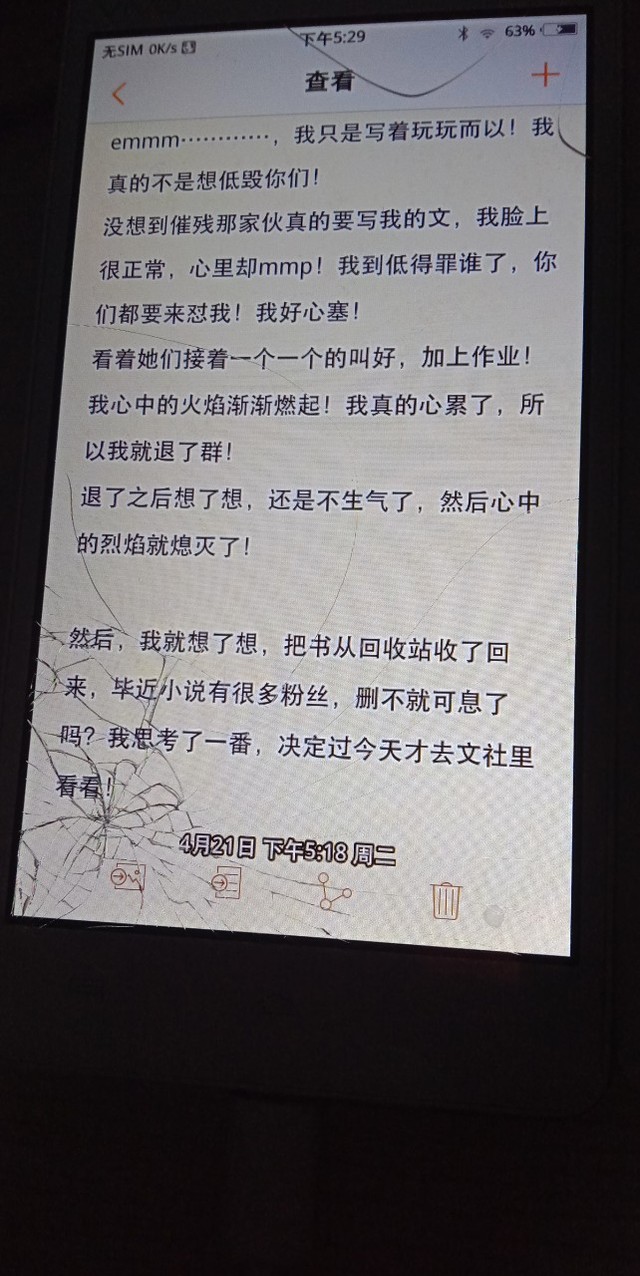 无SIM 0K/s
下午5:29
63%
查看
emmm…………，我只是写着玩玩而以！我
真的不是想低毁你们！
没想到催残那家伙真的要写我的文，我脸上
很正常，心里却mmp！我到低得罪谁了，你
们都要来怼我！我好心塞！
看着她们接着一个一个的叫好，加上作业！
我心中的火焰渐渐燃起！我真的心累了，所
以我就退了群！
退了之后想了想，还是不生气了，然后心中
的烈焰就熄灭了！
然后，我就想了想，把书从回收站收了回
来，毕近小说有很多粉丝，删不就可息了
吗？我思考了一番，决定过今天才去文社里
看看！
4月21日 下午5:18 周二